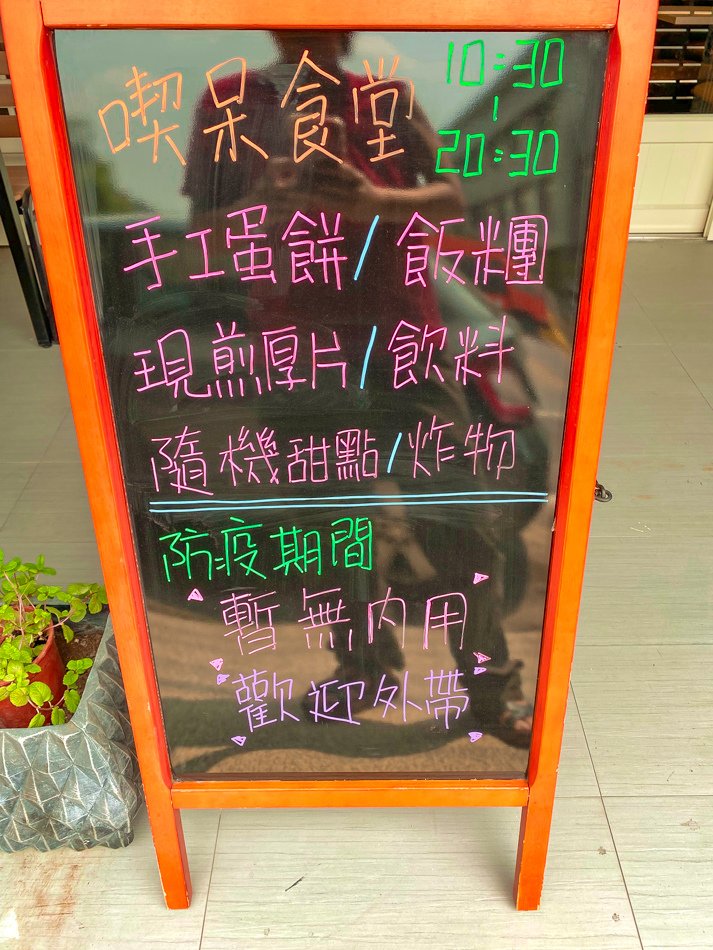 喫呆食堂 10:30
|
20:30
手工蛋餅/飯糰
現煎厚片/飲料
隨機甜點/炸物
防疫期間
暫無內用
歡迎外帶